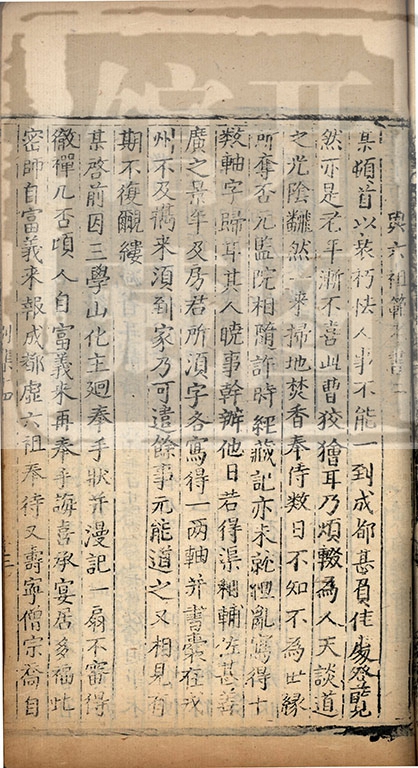 與六祖範和書二
某頓首以衰朽怯人事不能一到成都甚負佳
然亦是老年漸不喜此曹狡獪耳乃煩輟為人天談道
之光陰翻然一來掃地焚香奉侍數日不知不為世緣
所奪否元監院相隨許時經藏記亦未就但亂寫得十
數軸字歸耳其人曉事幹辦他日若得渠細輔佐甚善
廣之景年及房君所須字各寫得一兩軸并書在戎
州不及携來須到家乃可遣餘事元能道之又相見有
期不復覼縷
某啓前因三學山化主廻奉手狀并漫記一扇不審得
徹禪几否頃人自富義来再奉手誨喜承宴居多福此
密師自富義來報成都虛六祖奉待又壽寧僧宗喬自
別集十四